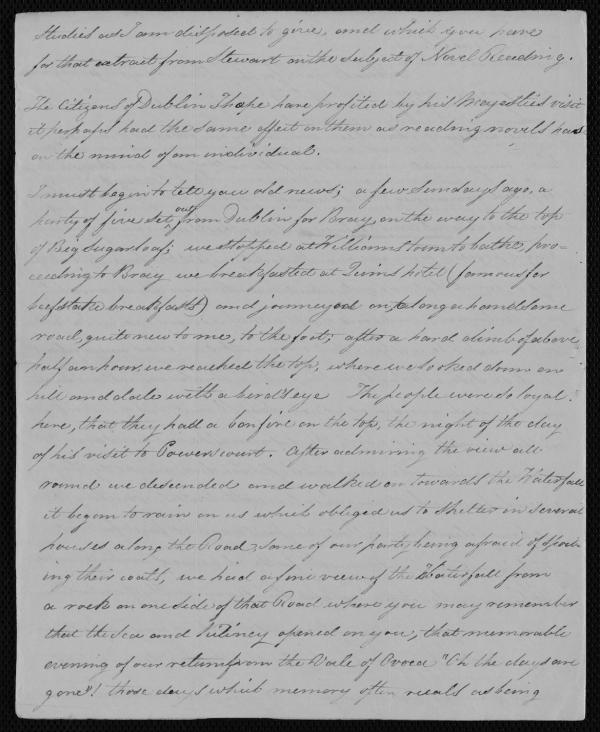 Studies as I am disposed to give, and which you have
for that extract from Stewart on the subject of Novel Reading.
The Citizens of Dublin I hope have profited by his Majesties visit
it perhaps had the same effect on them as reading novels has
on the mind of an individual.
I must begin to tell you old news; a few Sundays ago, a
party of five set out from Dublin for Bray, on the way to the top
of Big Sugarloaf; we stopped at Williamstown to bathe, pro-
ceeding to Bray we breakfasted at Quins hotel (famous for
beefstake breakfasts) and journeyed on, along a handsome
road, quite new to me, to the foot; after a hard climb of above
half an hour, we reached the top, where we looked down on
hill and dale with a bird's eye The people were so loyal
here, that they had a bonfire on the top, the night of the day
of his visit to Powerscourt. After admiring the view all
round we descended and walked on towards the Waterfall
it began to rain on us which obliged us to shelter in several
houses along the Road, some of our party being afraid of spoil-
ing their coats, we had a fine view of the Waterfall from
a rock on one side of that Road where you may remember
that the Sea and Killiney opened on you, that memorable
evening of our return from the Vale of Ovoca "Oh the days are
gone"! those days which memory often recals as being